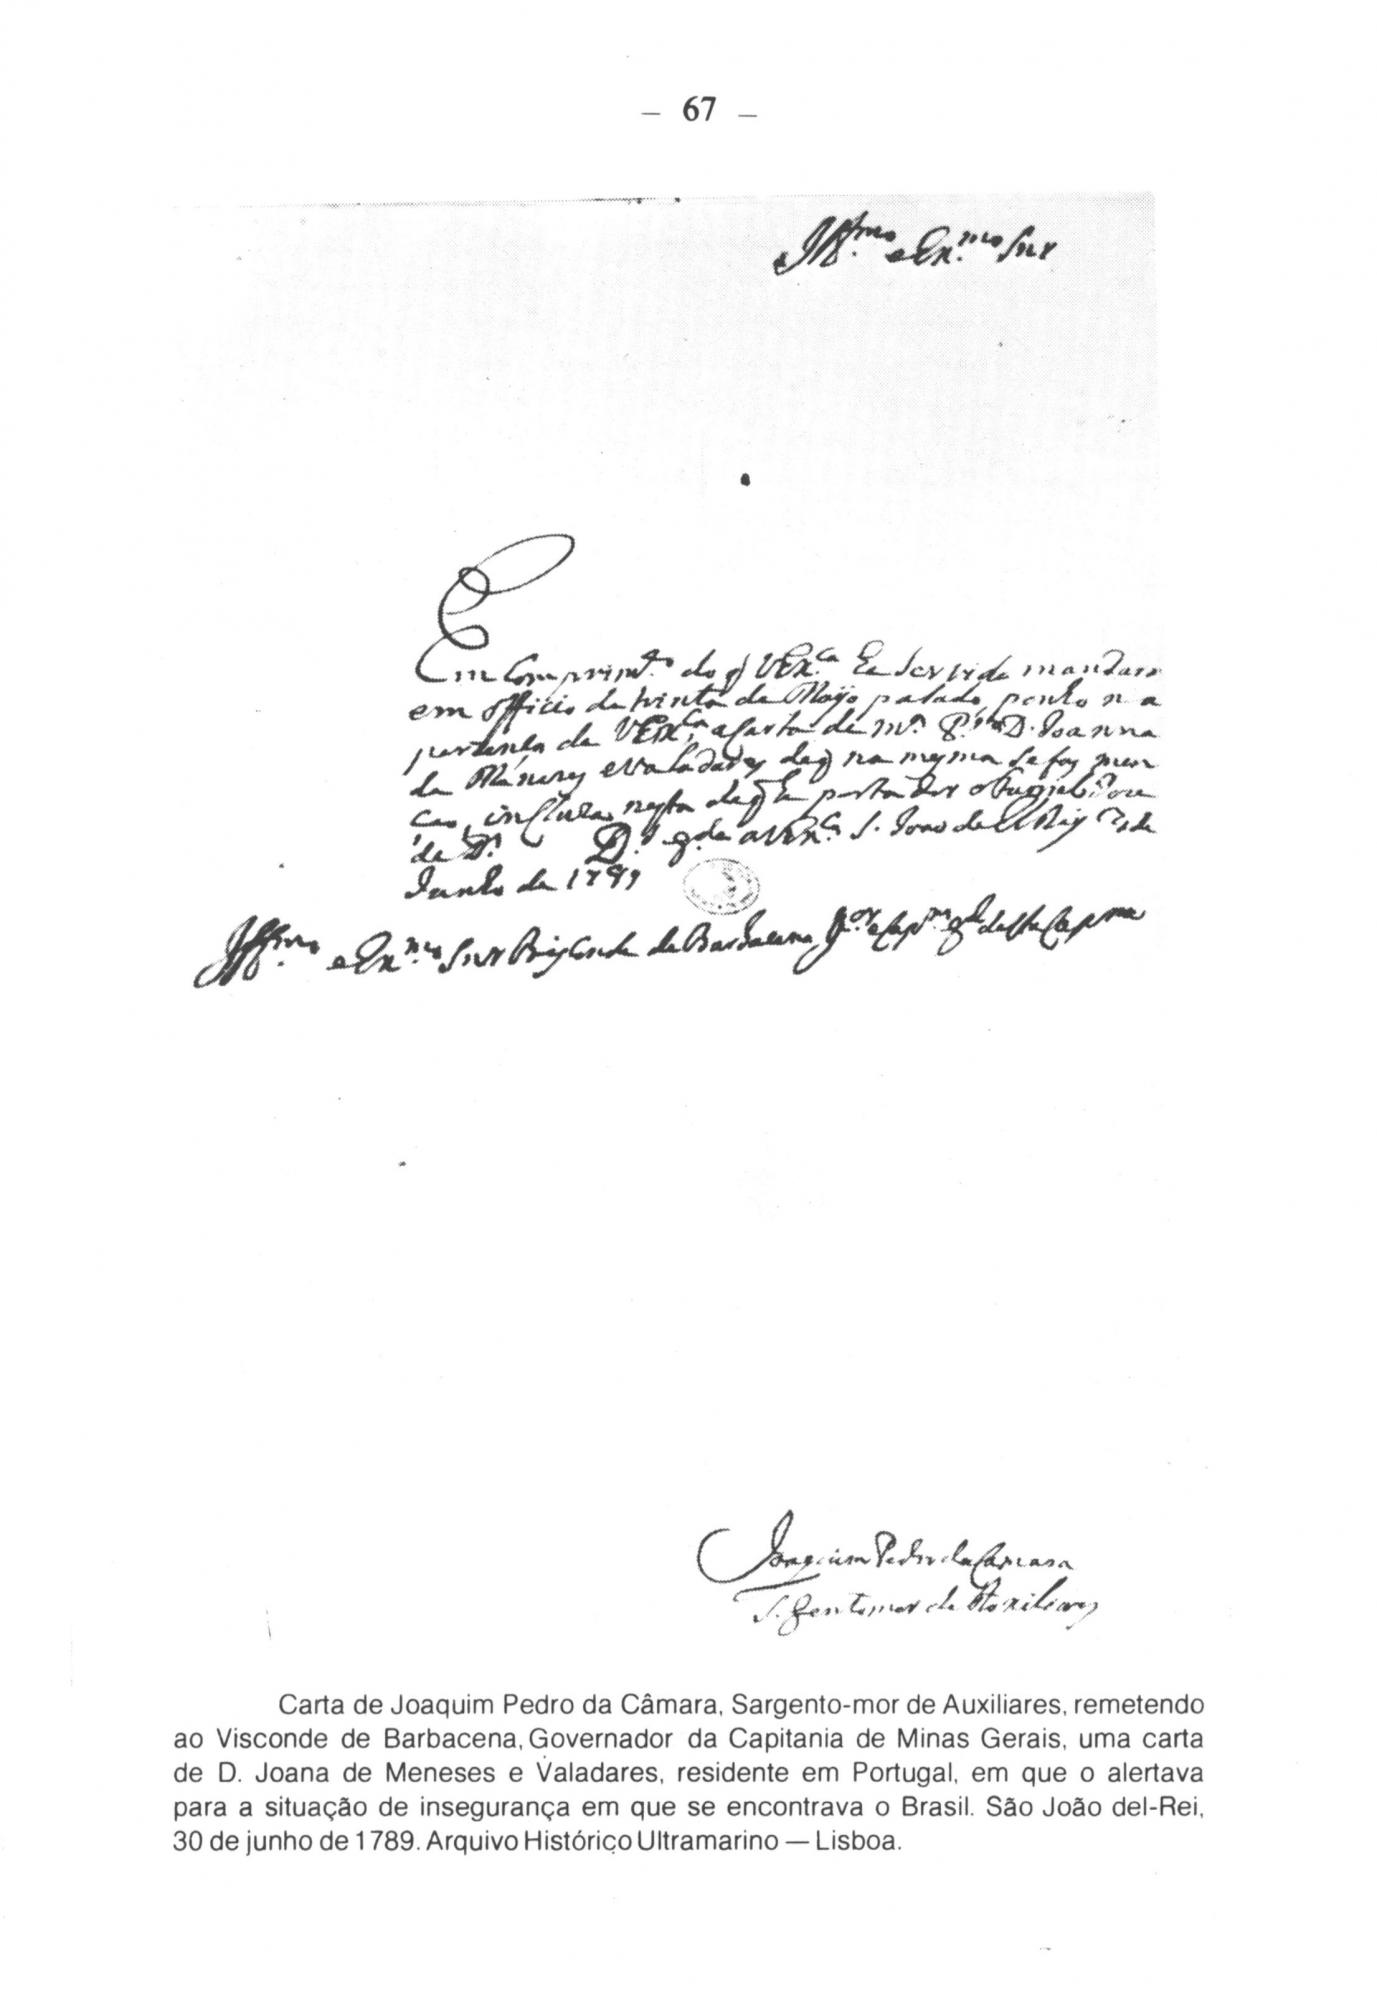 – 67 –
Ill.mo e Ex.mo Snr
Em comprim.to do q VEx.ca he servido mandar
em officio de trinta de Mayo pasado, ponho na
prezença de VEx.ca a Carta de m.a P.ma D. Joanna
de Menezes e Valadares de q na mesma se faz men
cao, incluza nesta de q he portador o
de D.s g.de a VEx.ca S. Joao de El Rey de
Junho de 1789
Ill.mo e Ex.mo Snr Visconde de Barbacena G.or e Cap.m g.l desta Cap.nia
Joaquim Pedro da Camara
S.gentomor de Auxiliares
Carta de Joaquim Pedro da Câmara, Sargento-mor de Auxiliares, remetendo
ao Visconde de Barbacena, Governador da Capitania de Minas Gerais, uma carta
de D. Joana de Meneses e Valadares, residente em Portugal, em que o alertava
para a situação de insegurança em que se encontrava o Brasil. São João del-Rei,
30 de junho de 1789. Arquivo Histórico Ultramarino — Lisboa.